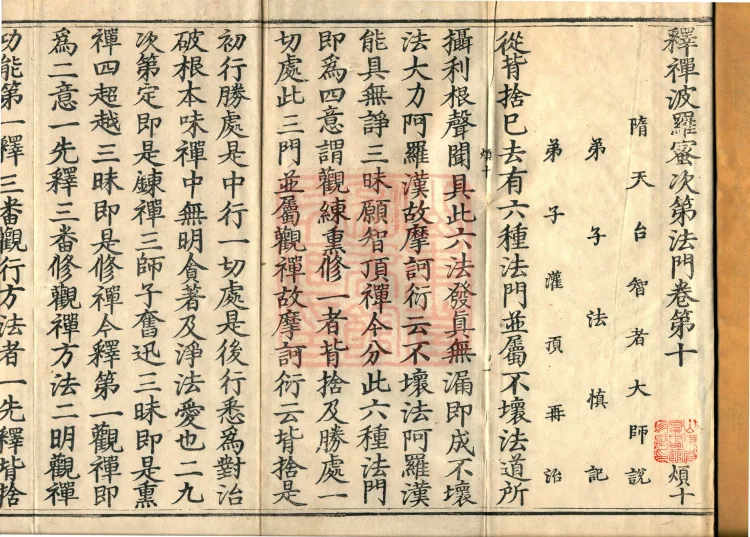 釋禪波羅蜜次第法門卷第十 煩十
隋天台智者大師說
弟子法慎記
弟子灌頂再治
從背捨已去有六種法門並屬不壞法道所
煩十
攝利根聲聞具此六法發真無漏即成不壞
法大力阿羅漢故摩訶衍云不壞法阿羅漢
能具無諍三昧願智頂禪今分此六種法門
即為四意謂觀練熏修一者背捨及勝處一
切處此三門並屬觀禪故摩訶衍云背捨是
初行勝處是中行一切處是後行悉為對治
破根本味禪中無明貪著及淨法愛也二九
次第定即是鍊禪三師子奮迅三昧即是熏
禪四超越三昧即是修禪今釋第一觀禪即
為二意一先釋三番修觀禪方法二明觀禪
功能第一釋三番觀行方法者一先釋背捨